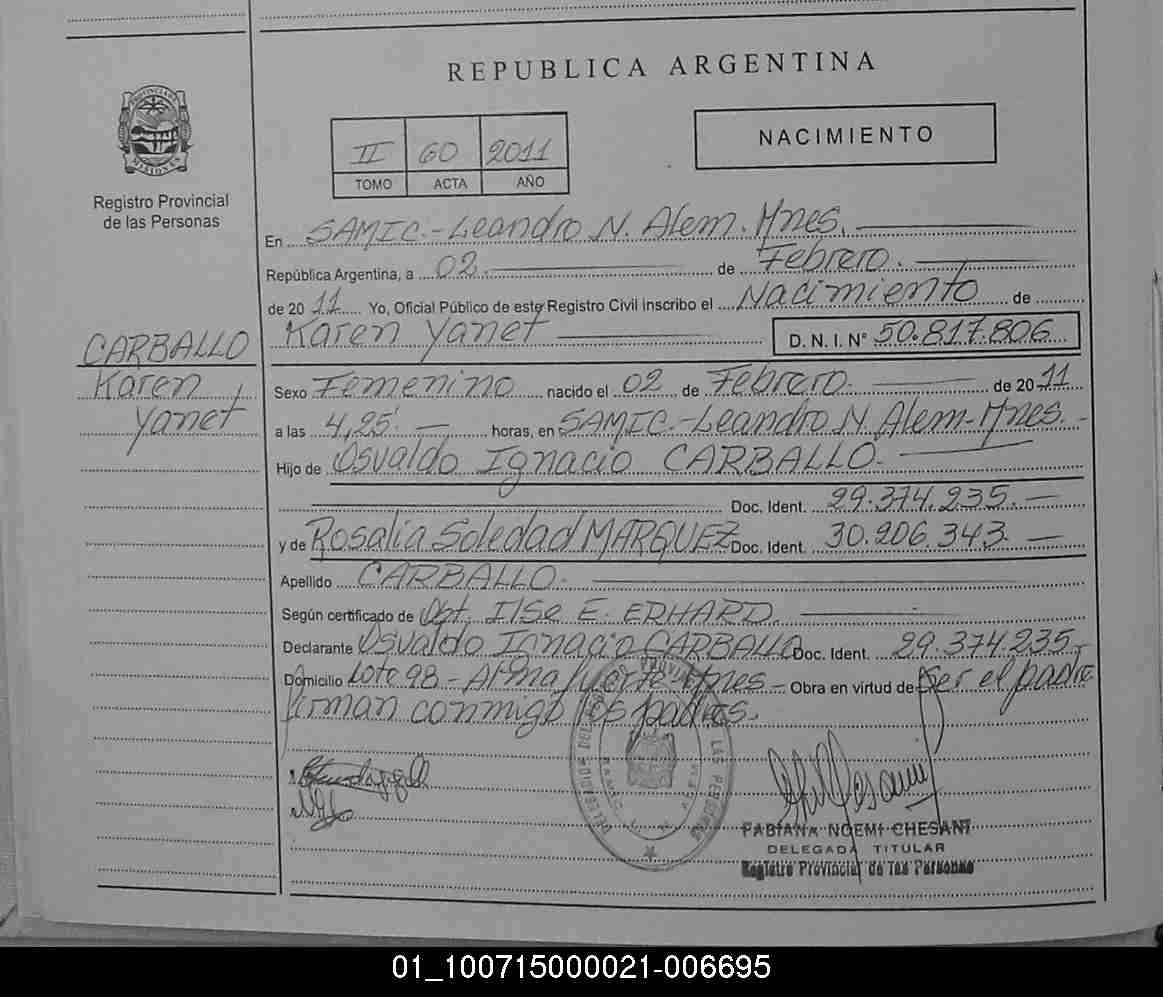 REPUBLICA ARGENTINA
PROVINCIA DE
MISIONES
Registro Provincial
de las Personas
II 60 2011
TOMO ACTA AÑO
NACIMIENTO
En SAMIC.-Leandro N. Alem. Mnes.
República Argentina, a 02. de Febrero.
de 2011 Yo, Oficial Público de este Registro Civil inscribo el Nacimiento de
Karen Yanet D. N. I. N° 50.817.806
CARBALLO
Karen
Yanet
Sexo Femenino nacido el 02 de Febrero. de 2011
a las 4,25' horas, en SAMIC.-Leandro N. Alem-Mnes.-
Hijo de Osvaldo Ignacio CARBALLO.
Doc. Ident. 29.374.235.
y de Rosalia Soledad MARQUEZ Doc. Ident. 30.206.343.
Apellido CARBALLO.
Según certificado de Obt. Ilse E. ERHARD.
Declarante Osvaldo Ignacio CARBALLO Doc. Ident. 29.374.235.-
Domicilio Lote 98 - Alma fuerte Mnes - Obra en virtud de ser el padre
firman conmigo los padres.
FABIANA NOEMI CHESANI
DELEGADA TITULAR
Registro Provincial de las Personas
01_100715000021-006695